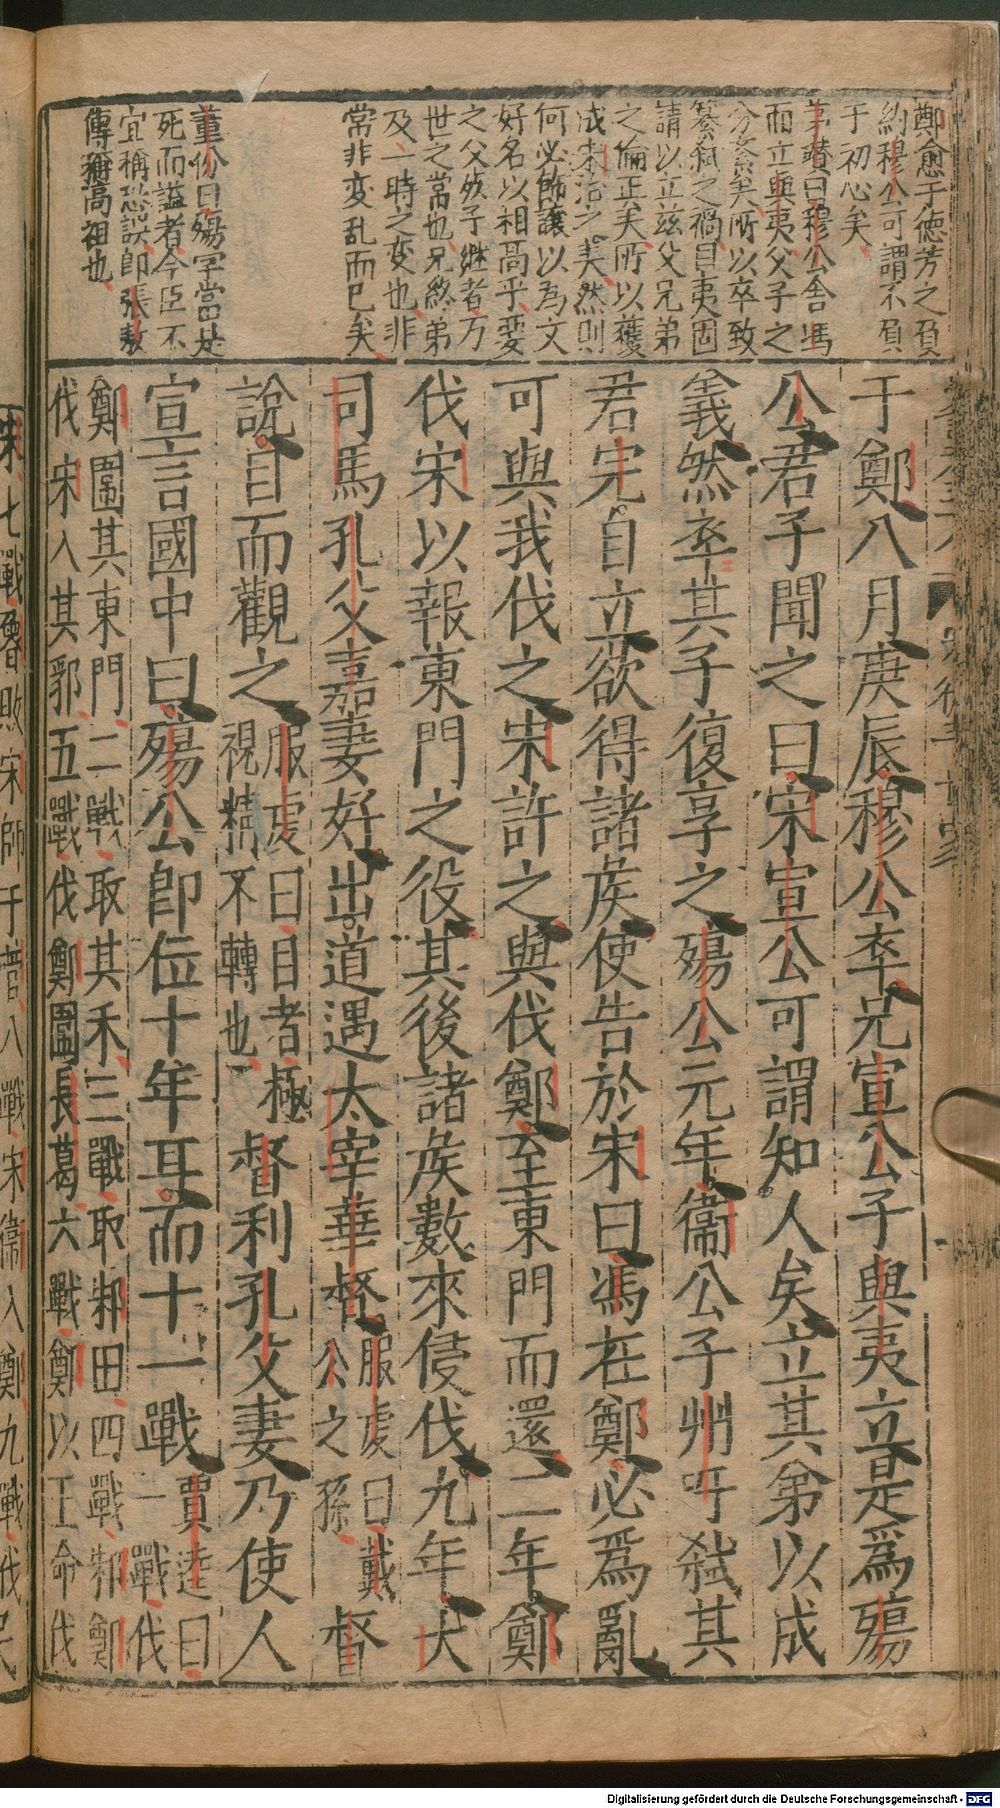 鄭愈于德芳之負
約穆公可謂不負
于初心矣
茅瓚曰穆公舍馮
而立與夷父子之
分紊矣所以卒致
簒弑之禍目夷固
請以立兹父兄弟
之倫正矣所以獲
成宋治之美然則
何必飾讓以為文
好名以相高乎要
之父死子継者万
世之常也兄終弟
及一時之変也非
常非変乱而已矣
董份曰殤字當是
死而諡者今臣不
宜稱恐誤即張敖
傳稱高祖也
于鄭八月庚辰穆公卒兄宣公子與夷立是爲殤
公君子聞之曰宋宣公可謂知人矣立其弟以成
義然卒其子復享之殤公元年衞公子州吁弑其
君完自立欲得諸矦使告於宋曰馮在鄭必爲亂
可與我伐之宋許之與伐鄭至東門而還二年鄭
伐宋以報東門之役其後諸矦數來侵伐九年大
司馬孔父嘉妻好出道遇太宰華督服虔曰戴公之孫督
說目而觀之服虔曰目者極視精不轉也督利孔父妻乃使人
宣言國中曰殤公卽位十年耳而十一戰賈逵曰一戰伐
鄭圍其東門二戰取其禾三戰取邾田四戰邾鄭
伐宋入其郛五戰伐鄭圍長葛六戰鄭以王命伐
宋七戰魯敗宋師于菅八戰宋衞入鄭九戰伐
Digitalisierung gefördert durch die Deutsche Forschungsgemeinschaft - DFG